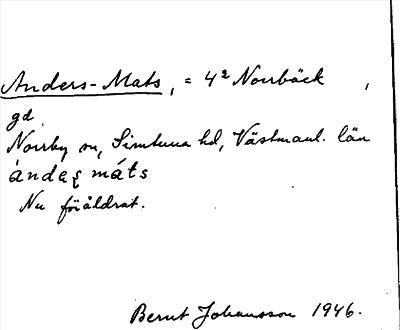 Anders-Mats, = 4² Norrbäck,
gd
Norrby sn, Simtuna hd, Västmanl. län
ándaʂ máts
Nu föråldrat.
Bernt Johansson 1946.